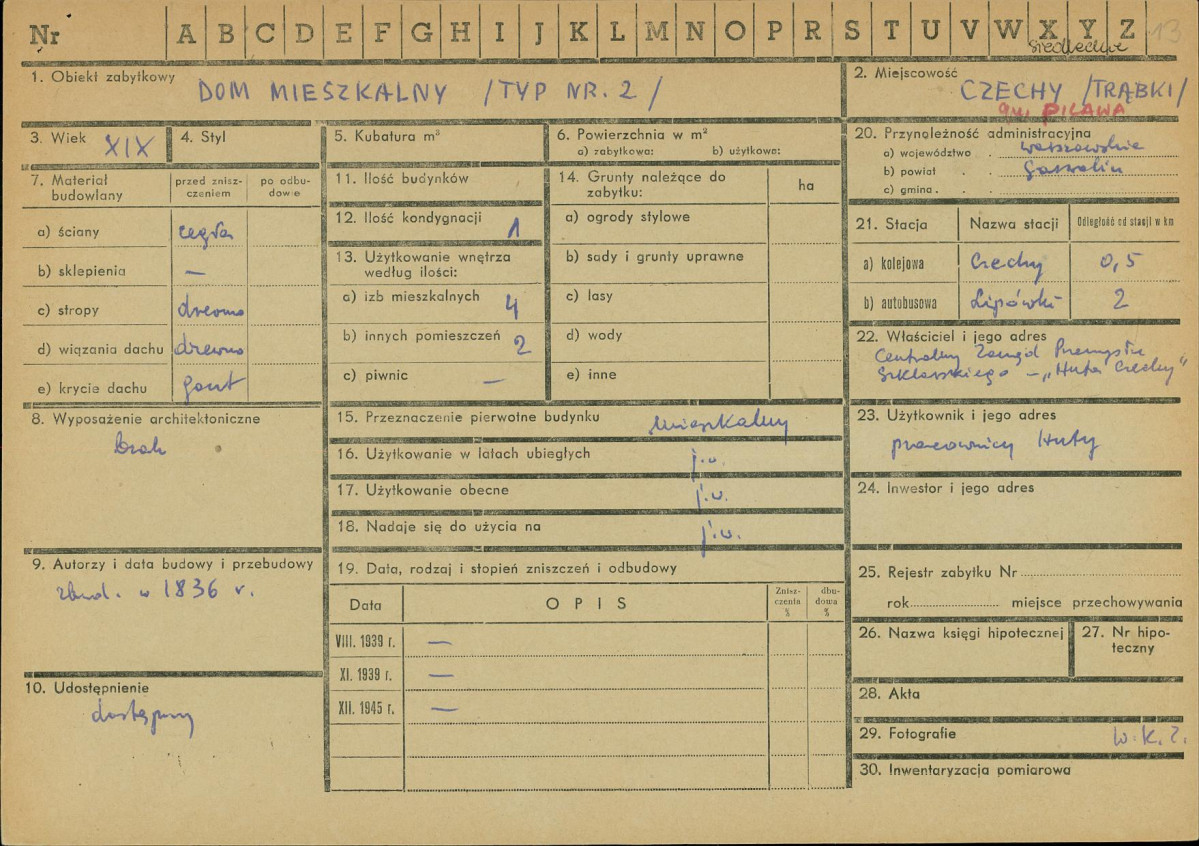 Nr A B C D E F G H I J K L M N O P R S T U V W X Y Z 13
siedleckie
1. Obiekt zabytkowy
DOM MIESZKALNY /TYP NR. 2/
2. Miejscowość
CZECHY /TRĄBKI/
gm. PILAWA
3. Wiek XIX
4. Styl
5. Kubatura m³
6. Powierzchnia w m²
a) zabytkowa: b) użytkowa:
20. Przynależność administracyjna
a) województwo . warszawskie
b) powiat . Garwolin
c) gmina . .
7. Materiał budowlany
przed znisz-
czeniem
po odbu-
dowie
a) ściany cegła
b) sklepienia —
c) stropy drewno
d) wiązania dachu drewno
e) krycie dachu gont
11. Ilość budynków
12. Ilość kondygnacji 1
13. Użytkowanie wnętrza
według ilości:
a) izb mieszkalnych 4
b) innych pomieszczeń 2
c) piwnic —
14. Grunty należące do
zabytku:
ha
a) ogrody stylowe
b) sady i grunty uprawne
c) lasy
d) wody
e) inne
21. Stacja Nazwa stacji Odległość od stacji w km
a) kolejowa Czechy 0,5
b) autobusowa Lipówki 2
22. Właściciel i jego adres
Centralny Zarząd Przemysłu
Szklarskiego – „Huta Czechy"
8. Wyposażenie architektoniczne
brak
15. Przeznaczenie pierwotne budynku mieszkalny
16. Użytkowanie w latach ubiegłych j.w.
17. Użytkowanie obecne j.w.
18. Nadaje się do użycia na j.w.
23. Użytkownik i jego adres
pracownicy Huty
24. Inwestor i jego adres
9. Autorzy i data budowy i przebudowy
zbud. w 1836 r.
19. Data, rodzaj i stopień zniszczeń i odbudowy
Data OPIS
Znisz-
czenia
%
dbu-
dowa
%
VIII. 1939 r. —
XI. 1939 r. —
XII. 1945 r. —
25. Rejestr zabytku Nr
rok miejsce przechowywania
26. Nazwa księgi hipotecznej
27. Nr hipo-
teczny
10. Udostępnienie
dostępny
28. Akta
29. Fotografie W.K.Z.
30. Inwentaryzacja pomiarowa